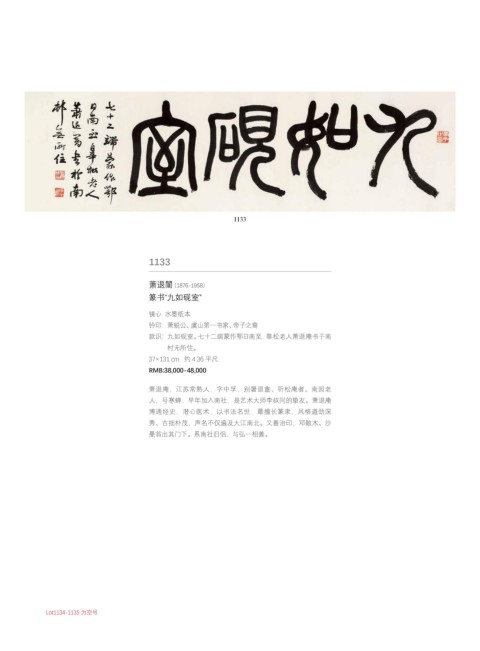 九如砚室
七十二叟蒙作鄂
日南至皋松老人
萧退闇书于南
村无所住
1133
1133
萧退闇(1876-1958)
篆书“九如砚室”
镜心 水墨纸本
钤印：萧蜕公、虞山第一书家、帝子之裔
款识：九如砚室。七十二叟蒙作鄂日南至，皋松老人萧退庵书于南
村无所住。
37×131 cm 约 4.36 平尺
RMB:38,000-48,000
萧退庵，江苏常熟人，字中孚，别署退盦、听松庵者、南园老
人、号寒蝉，早年加入南社，是艺术大师李叔同的挚友。萧退庵
博通经史，潜心医术，以书法名世，最擅长篆隶，风格遒劲深
秀、古拙朴茂，声名不仅遍及大江南北。又善治印，邓散木、沙
曼翁出其门下。系南社旧侣，与弘一相善。
Lot1134-1135 为空号